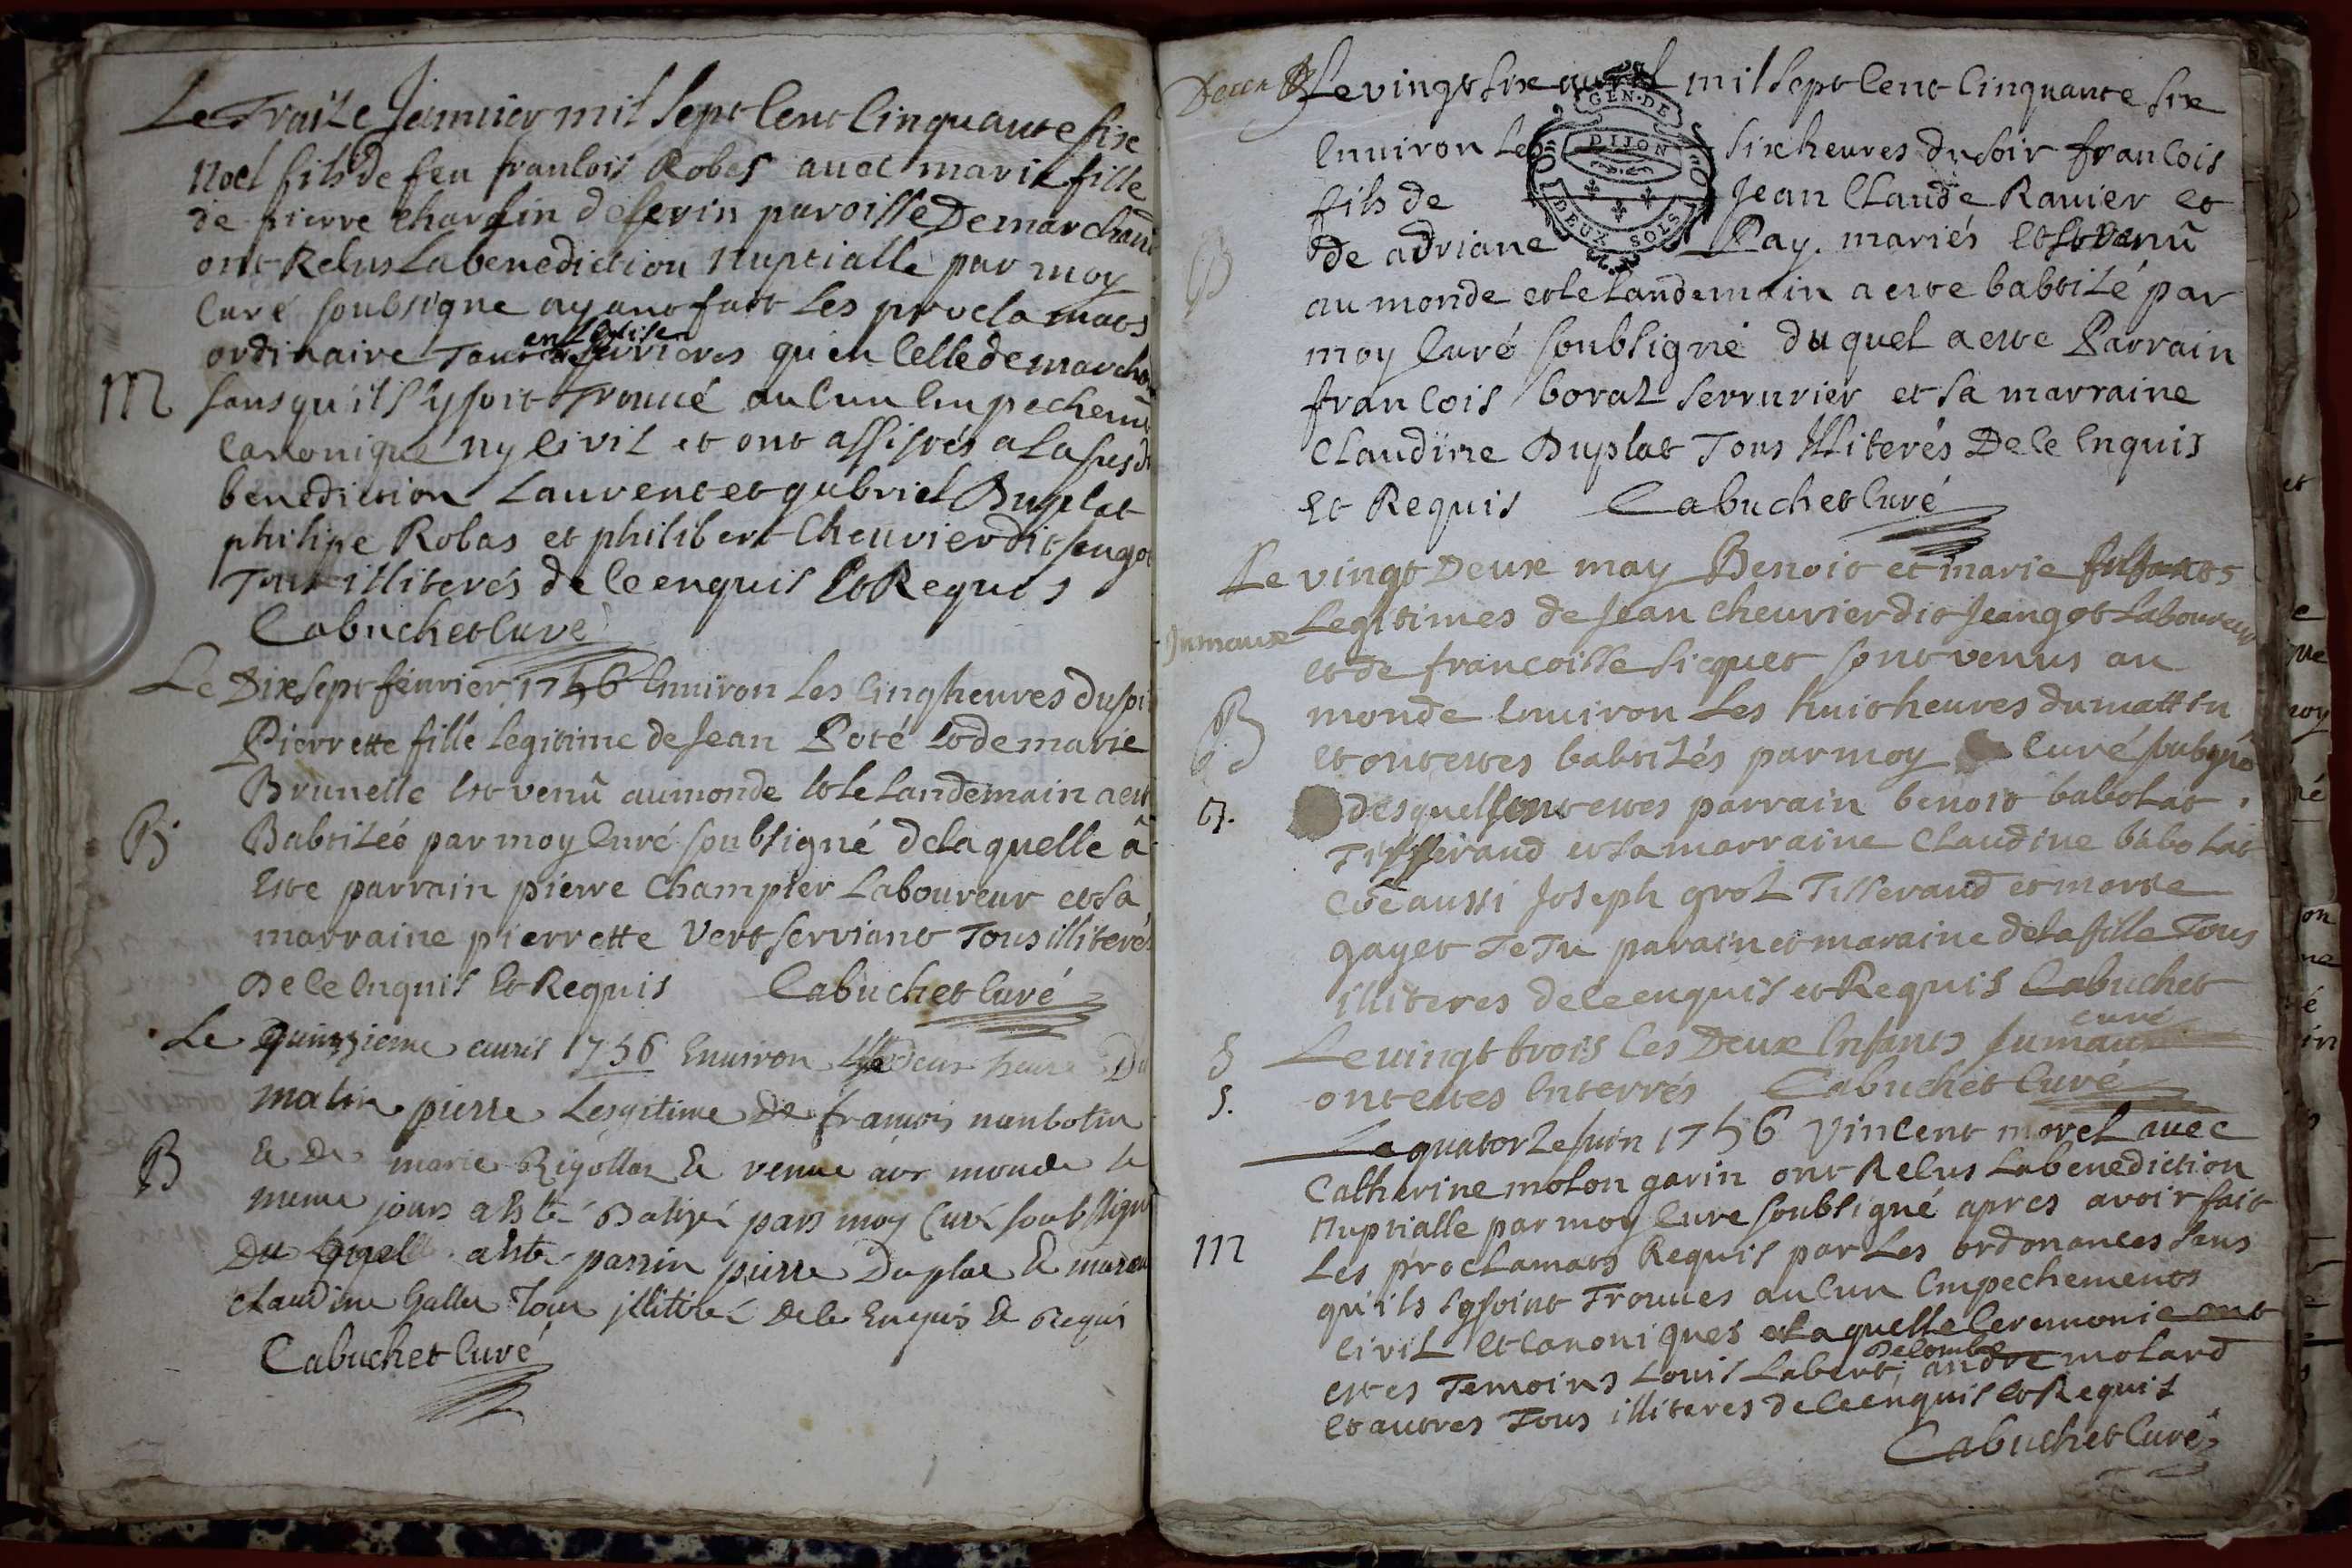 Le Traize Januier mil sept cent cinquante six
Noel fils de feu francois Robas auec marie fille
de pierre charfin deserin paroisse De marchan
ont Recus La benediction Nuptialle par moy
curé soubsigne ayant fait Les proclamats
ordinaire Tant en Leglise de qu'en celle de marcho
M sans qu'il s'y soit Trouué aucun Empechem
canonique ny civil et ont assistés a La susd
benediction Laurent et gabriel Duplat
philipe Robas et philibert cheuvier dit jengot
Tous illiterés de ce enquis Et Requis
Cabuchet curé
Le Dix sept féurier 1756 enuiron Les cinq heures du soi
Pierrette fille Legitime de Jean Poté et de marie
Brunelle est venû au monde et le Landemain a est
B Babtiseé par moy curé soubsigné de Laquelle â
este parrain pierre champier Laboureur et sa
marraine pierrette Vert serviant Tous illiterés
De ce enquis Et Requis Cabuchet curé
Le quinzieme auril 1756 Enuiron deux heure Du
matin pierre Legitime De françois
B & De marie Rigollat & venue aux monde le
meme jours a esté Batizé pars moy Curé soubsigné
Du quelle a este parrin pierre Duplat & marain
claudine Galler Tous illiteré De ce Enquis & Requis
Cabuchet curé
Le vingt six auril mil sept cent cinquante six
GEN·DE DIJON DEUX SOLS
enuiron Les six heures du soir francois
fils de Jean claude Rauier et
B de adriane Pay mariés est venû
au monde et le Landemain a este babtisé par
moy curé soubsigné du quel a este Parrain
francois borat serrurier et sa marraine
claudine Duplat Tous illiterés De ce enquis
et Requis Cabuchet curé
Le vingt Deux may Benoit et marie enfants
Jumaux Legitimes de Jean cheuvier dit Jeangot Laboureur
et de francoisse sicquet sont venus au
B monde enuiron Les huit heures du mattin
et ont estes babtisés par moy curé soubsigné
B. desquels ont estes parrain benoit babolat
Tisserand et sa marraine claudine babolat
coe aussi Joseph grot Tisserand et marie
gayet TeTu parain et maraine de La fille Tous
illiteres de ce enquis et Requis Cabuchet
curé
S Le vingt trois les Deux enfants Jumaux
S. ont estes enterrés Cabuchet curé
Le quatorze Juin 1756 Vincent morel auec
Catherine molon garin ont Recus La benediction
M Nuptialle par moy curé soubsigné apres avoir fait
Les proclamats Requis par Les ordonances sans
qu'ils s'y soint Trouues aucun empechements
civil et canoniques a Laquelle ceremonie ont
Decombe
estes Temoins Louis Labert, andre molard
et autres Tous illiteres de ce enquis et Requis
Cabuchet curé